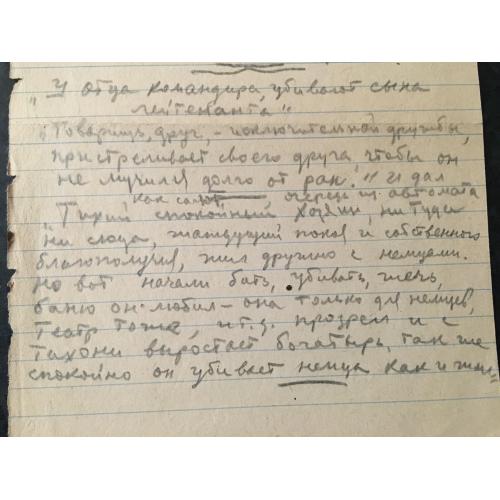 „У отца командира, убивают сына
лейтенанта“
„Товарищ, друг, – исключительной дружбы,
пристреливает своего друга, чтобы он
не мучился долго от ран.“ и дал
как салют очередь из автомата
„Тихий спокойный хозяин, ни туды
ни сюда, жаждущий покоя и собственного
благополучия, жил дружно с немцами.
но вот начали бать, убивать, жечь,
баню он любил – она только для немцев,
театр тоже, и т.д. прозрел и с
тахони выростает богатырь, так же
спокойно он убивает немца как и жил“